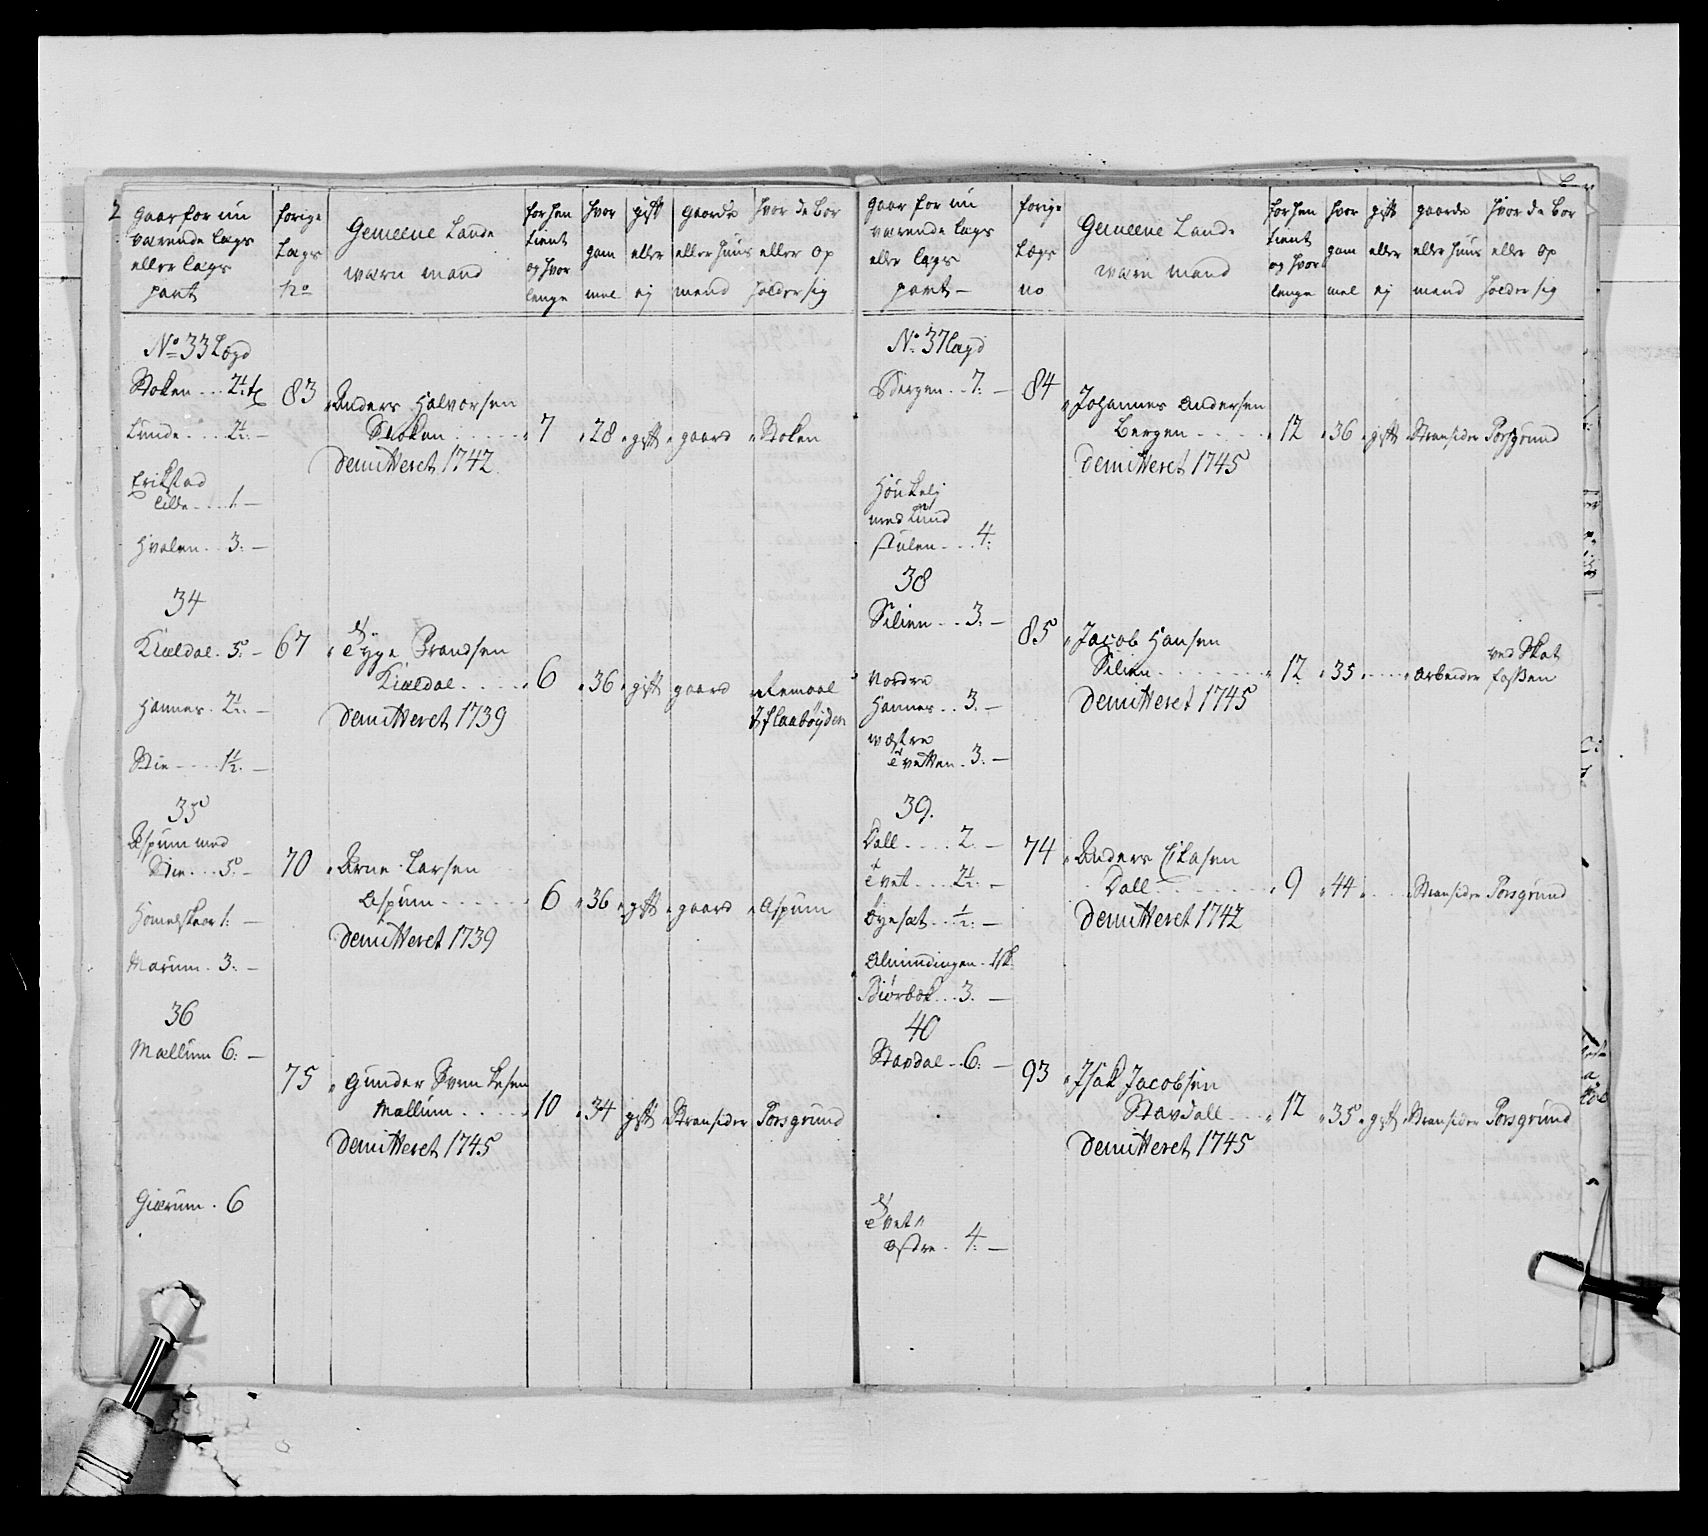 2
gaar for nu
værende lægs
eller lægs
part
forige
Lægs
no
Gemeene Lande
wærn mand
forhen
tient
og hvor
lenge
hvor
gam
mel
gift
eller
ej
gaarde
eller huus
mand
hvor de bor
eller op
holder sig
No 33 Lægd
Stoken . . . 2½ tl
Lunde . . . . 2½ —
Erikstad
lille . . . 1 —
Hvalen . . 3: —
83
Anders Halvorsen
Stoken . . . . .
Demitteret 1742
7
28
gift
gaard
Stoken
34
Kiældal . 5: —
Hannes . 2½: —
Stie . . . . 1½. —
67
Tyge Brandsen
Kiældal . . . . .
Demitteret 1739
6
36
gift
gaard
Remaal
I Slaabøyden
35
Aspum med
Stie . . . 5: —
Homelskaar 1: —
Marum . 3: —
70
Arne Larsen
Aspum . . . . . .
Demitteret 1739
6
36
gift
gaard
Aspum
36
Mællum 6: —
Giærum . 6
75
Gunder Svenkesen
Mællum . . . . .
Demitteret 1745
10
34
gift
Stransider
Porsgrund
gaar for nu
værende lægs
eller lægs
part —
forige
Lægs
no
Gemeene Lande
wærn mand
forhen
tient
og hvor
lenge
hvor
gam
mel
gift
eller
ej
gaarde
eller huus
mand
hvor de bor
eller op
holder sig
No. 37 lægd
Bergen . . 7: —
med Lund
stulen . . . 4:
84
Johannes Andersen
Bergen . . . . .
Demitteret 1745
12
36
gift
Stransider
Porsgrund
38
Silien . . 3. —
Nordre
Hannes . . 3. —
wæstre
Tvetten . 3: —
85
Jacob Hansen
Silien . . . . . . . .
Demitteret 1745
12
35
arbeider
ved Skot
fossen
39.
Dall . . . . 2. —
Tvet . . . . 2½. —
Øyesæt . . ½. —
Almindingen . 1 sk.
Biørbek . . . 3. —
74
Anders Elasen
Dall . . . . . . . . .
Demitteret 1742
9
44
Stransider
Porsgrund
40
Stavdal . . 6. —
Tvet
østre . 4: —
93
Isak Jacobsen
Stavdall . . .
Demitteret 1745
12
35
gift
Stransider
Porsgrund